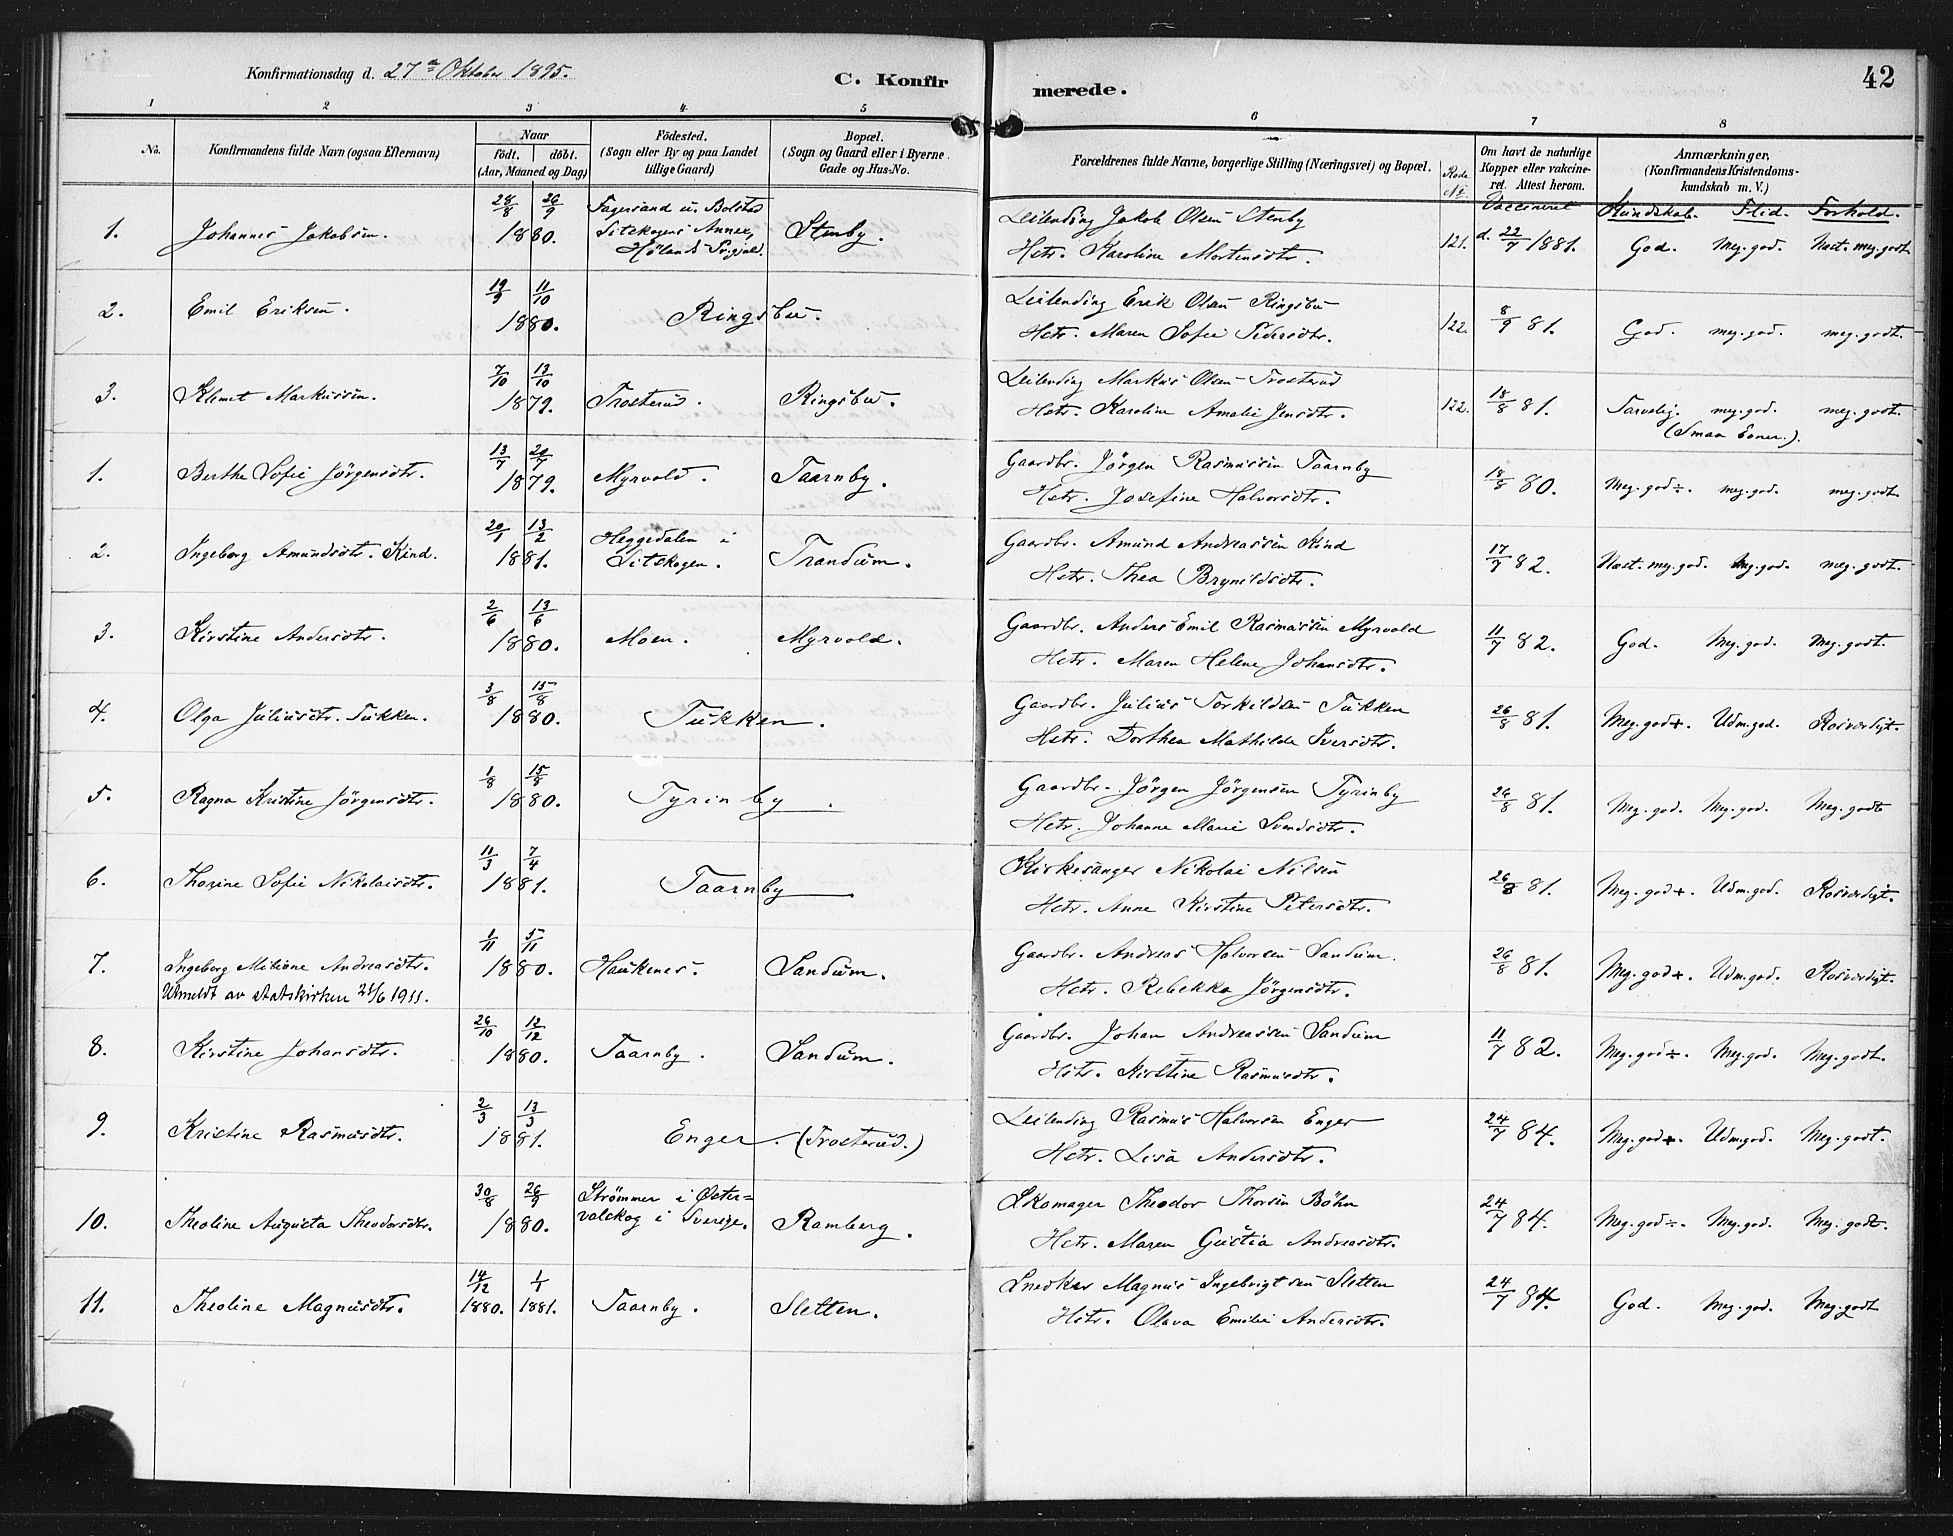 Konfirmationsdag d. 27de Oktober 1895.
C. Konfirmerede.
42
1 2 3 4 5 6 7 8
No.
Konfirmandens fulde Navn (ogsaa Efternavn)
Naar
født. døbt.
(Aar, Maaned og Dag)
Fødested.
(Sogn eller By og paa Landet
tillige Gaard)
Bopæl.
(Sogn og Gaard eller i Byerne
Gade og Hus-No.
Forældrenes fulde Navne, borgerlige Stilling (Næringsvei) og Bopæl.
Rode No.
Om havt de naturlige
Kopper eller vakcine-
ret. Attest herom.
Anmærkninger,
(Konfirmandens Kristendoms-
kundskab m. V.)
Vaccineret Kundskab. Flid. Forhold.
1. Johannes Jakobsen. 28/8 26/9 1880. Fagersand u. Bolstad
Setskogens Annex,
Hølands Prgjæld. Stenby. Leilending Jakob Olsen Stenby
Hstr. Karoline Mortensdtr. 121. d. 22/7 1881. God. Meg. god. Næst. meg. godt.
2. Emil Eriksen. 19/9 11/10 1880. Ringsbu. Leilending Erik Olsen Ringsbu
Hstr. Maren Sofie Pedersdtr. 122. 8/9 81. God. meg. god. meg. godt.
3. Klemet Markussen. 7/10 13/10 1879. Trosterud. Ringsbu. Leilending Markus Olsen Trosterud
Hstr. Karoline Amalie Jensdtr. 122. 18/8 81. Tarvelig. meg. god. meg. godt.
(Smaa Evner.)
1. Berthe Sofie Jørgensdtr. 13/7 20/7 1879. Myrvold. Taarnby. Gaardbr. Jørgen Rasmussen Taarnby
Hstr. Josefine Halvorsdtr. 18/8 80. Meg. god÷. meg. god. meg. godt.
2. Ingeborg Amundsdtr. Kind. 20/1 13/2 1881. Heggedalen i
Setskogen. Trandum. Gaardbr. Amund Andreassen Kind
Hstr. Thea Brynildsdtr. 17/7 82. Næst. meg. god. Meg. god. meg. godt.
3. Kirstine Andersdtr. 2/6 13/6 1880. Moen. Myrvold. Gaardbr. Anders Emil Rasmussen Myrvold
Hstr. Maren Helene Johansdtr. 11/7 82. God. Meg. god. Meg. godt.
4. Olga Juliusdtr. Tukken. 3/8 15/8 1880. Tukken. Gaardbr. Julius Torkildsen Tukken
Hstr. Dorthea Mathilde Iversdtr. 26/8 81. Meg. god+. Udm. god. Rosværdigt.
5. Ragna Kristine Jørgensdtr. 1/8 15/8 1880. Tyrinby. Gaardbr. Jørgen Jørgensen Tyrinby
Hstr. Johanne Marie Svendsdtr. 26/8 81. Meg. god. Meg. god. Meg. godt
6. Thorine Sofie Nikolaisdtr. 11/3 7/4 1881. Taarnby Kirkesanger Nikolai Nilsen
Hstr. Anne Kirstine Petersdtr. 26/8 81. Meg. god+. Udm. god. Rosværdigt.
7. Ingeborg Miliane Andreasdtr.
Utmeldt av statskirken 21/6 1911. 1/11 5/11 1880. Haukenes. Sandum. Gaardbr. Andreas Halvorsen Sandum.
Hstr. Rebekka Jørgensdtr. 26/8 81. Meg. god+. Udm. god. Rosværdigt.
8. Kirstine Johansdtr. 26/10 12/12 1880. Taarnby. Sandum. Gaardbr. Johan Andreassen Sandum
Hstr. Kirstine Rasmusdtr. 11/7 82. Meg. god÷. Meg. god. Meg. godt.
9. Kristine Rasmusdtr. 2/3 13/3 1881. Enger. (Trosterud.) Leilending Rasmus Halvorsen Enger
Hstr. Lisa Andersdtr. 24/7 84. Meg. god+. Udm. god. Meg. godt.
10. Theoline Augusta Theodorsdtr. 30/8 26/9 1880. Strømmer i Øster=
valskog i Sverige. Ramberg. Skomager Theodor Thorsen Bøhn
Hstr. Maren Gustia Andreasdtr. 24/7 84. Meg. god÷. Meg. god. Meg. godt.
11. Theoline Magnusdtr. 14/12 1880. 1/1 1881. Taarnby. Sletten. Snedker Magnus Ingebrigtsen Sletten
Hstr. Olava Emilie Andersdtr. 24/7 84. God. Meg. god. Meg. godt